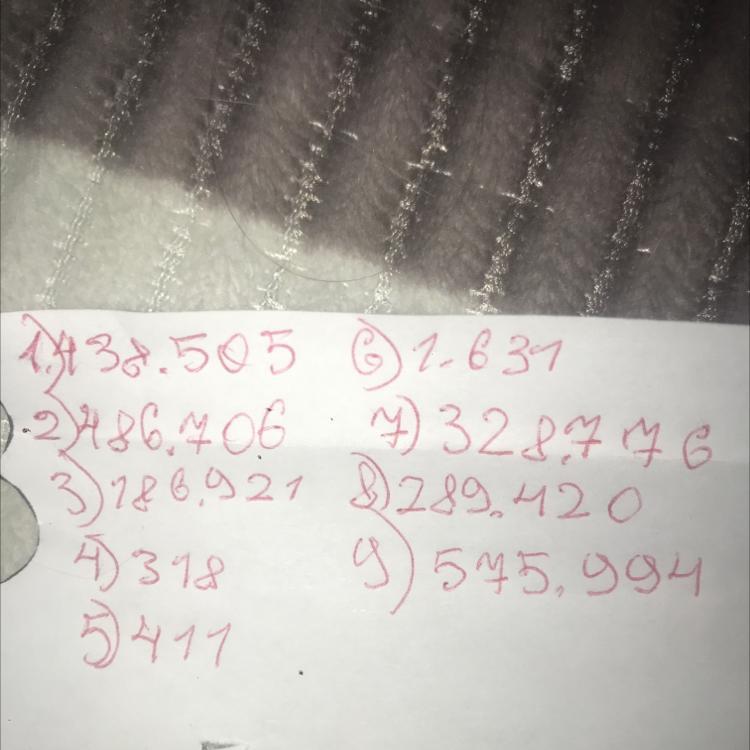 1.)438.505
2)486.706
3)186.921
4)318
5)411
6)1.631
7)328.776
8)289.420
9)575.994